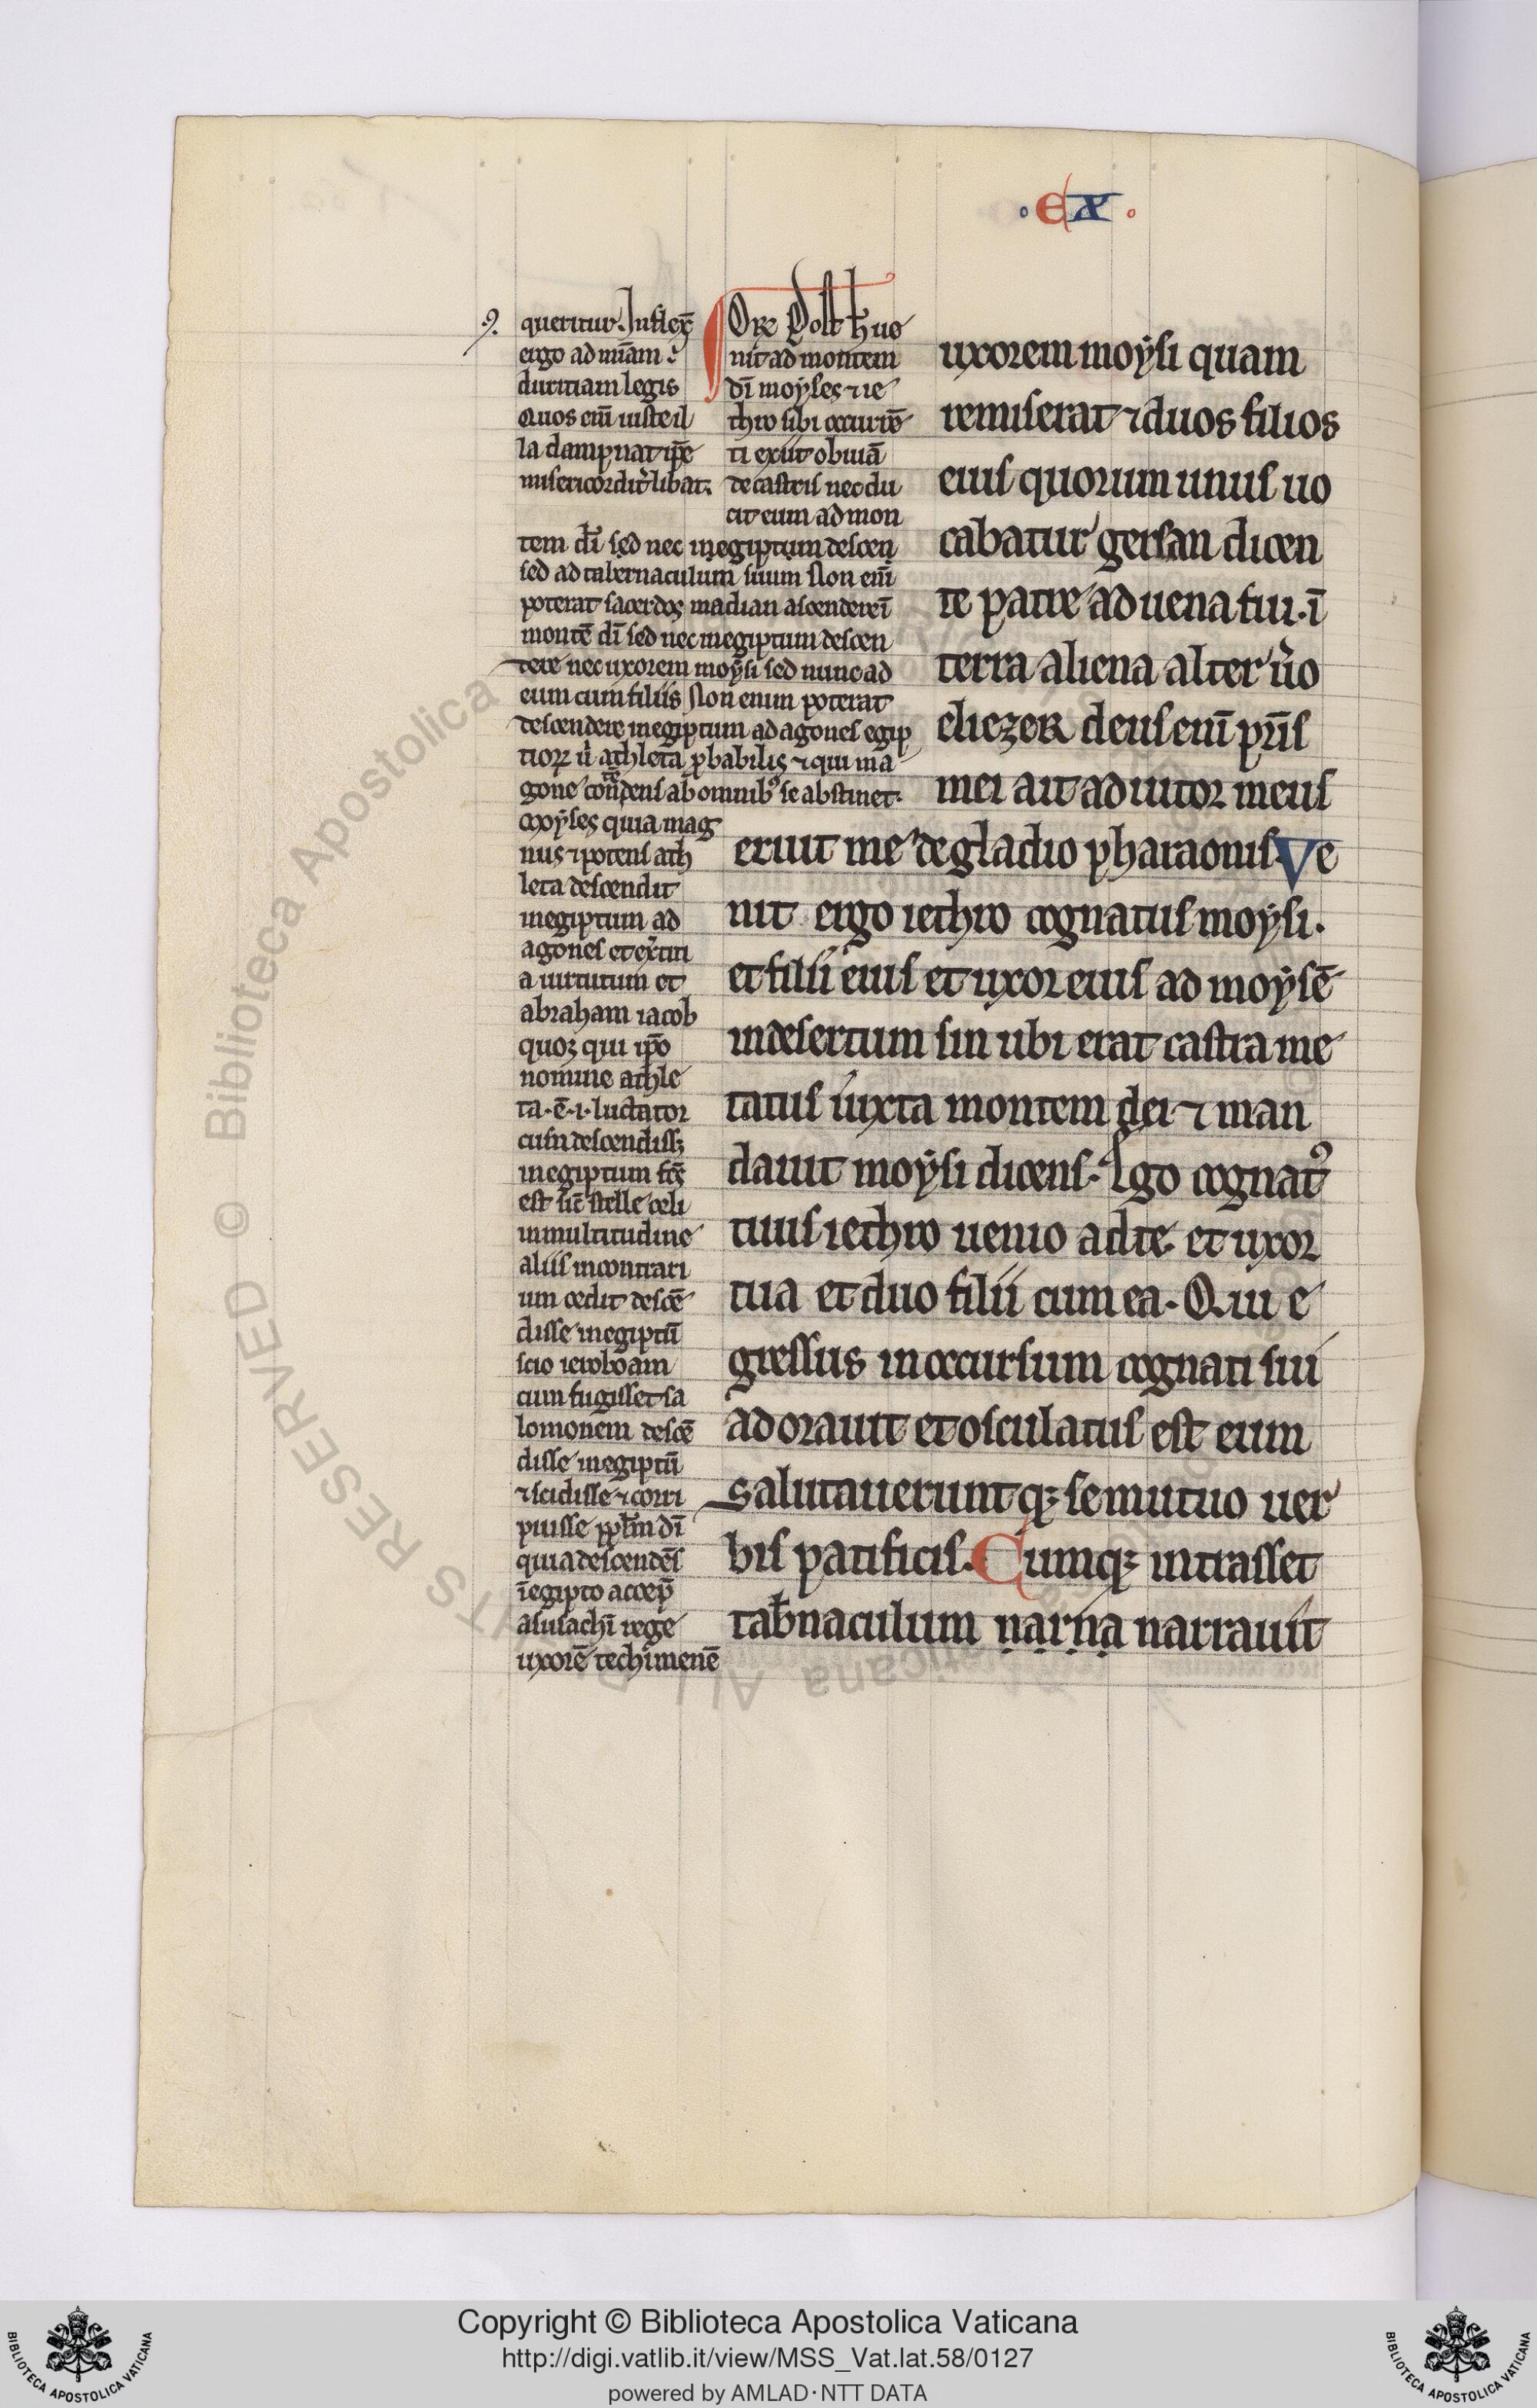 · EX ·
queritur. Infliex̄
ergo ad miām ⁊
duritiam legis
Quos eni̅ iuste il
la dampnat ip̄e
misericordit̉ libat.
Ore Post h̄ ue
nit ad montem
di̅ moẏses ⁊ ie
thro sibi occurrē
ti exiit obuiā
de castris nec du
cit eum ad mon
tem di̅ sed nec in egiptum descen
sed ad tabernaculum suum Non eni̅
poterat sacerdos madian ascendere ī
montē di̅ sed nec in egiptum descen
dere nec uxorem moẏsi sed nunc ad
eum cum filiis Non enim poterat
descendere in egiptum ad agones egip
tioꝝ n̄ athleta ꝓbabilis ⁊ qui in a
gone contendens ab omnibꝰ se abstinet.
Moẏses quia mag
nus ⁊ potens ath
leta descendit
in egiptum ad
agones et ex̉citi
a uirtutum et
abraham iacob
quoꝫ qui ip̄o
nomine athle
ta · ē · i · luctator
cum descendissꝫ
in egiptum fc̄s
est ut̄ stelle celi
in multitudine
aliis in contrari
um cedit descē
disse in egiptū
scio ieroboam
cum fugisset sa
lomonem descē
disse in egiptū
⁊ scidisse ⁊ corri
puisse pp̄l̄m di̅
quia descendēs
ī egipto accep̄
a susachī rege
uxorē techimenē
uxorem moẏsi quam
remiserat ⁊ duos filios
eius quorum unus uo
cabatur gersan dicen
te patre aduena fui · ī
terra aliena alter ủo
eliezer deus eni̅ pr̄is
mei ait adiutor meus
eruit me de gladio pharaonis Ve
nit ergo iethro cognatus moẏsi.
et filii eius et uxor eius ad moẏsē
in desertum sin ubi erat castra me
tatus iuxta montem dei ⁊ man
dauit moẏsi dicens. Ego cognatꝰ
tuus iethro uenio ad te. et uxor
tua et duo filii cum ea. Qui e
gressus in occursum cognati sui
adorauit et osculatus est eum
Salutaueruntqꝫ se mutuo uer
bis pacificis. Cumqꝫ intrasset
tab̄naculum ṇaṛṇạ narrauit
Copyright © Biblioteca Apostolica Vaticana
http://digi.vatlib.it/view/MSS_Vat.lat.58/0127
powered by AMLAD·NTT DATA